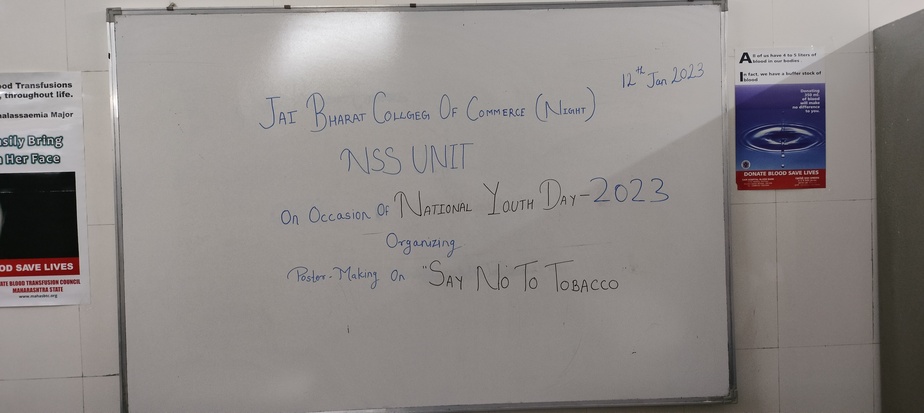 ood Transfusions
throughout life.
halassaemia Major
asily Bring
Her Face
OD SAVE LIVES
ATE BLOOD TRANSFUSION COUNCIL
MAHARASHTRA STATE
www.mahasbtc.org
12th Jan 2023
JAI BHARAT COLLGEG OF COMMERCE (NIGHT)
NSS UNIT
On Occasion Of NATIONAL YOUTH DAY-2023
Organizing
Poster-Making On "SAY NO TO TOBACCO"
All of us have 4 to 5 liters of
blood in our bodies.
In fact, we have a buffer stock of
blood
Donating
350 ml.
of blood
will make
no difference
to you.
DONATE BLOOD SAVE LIVES